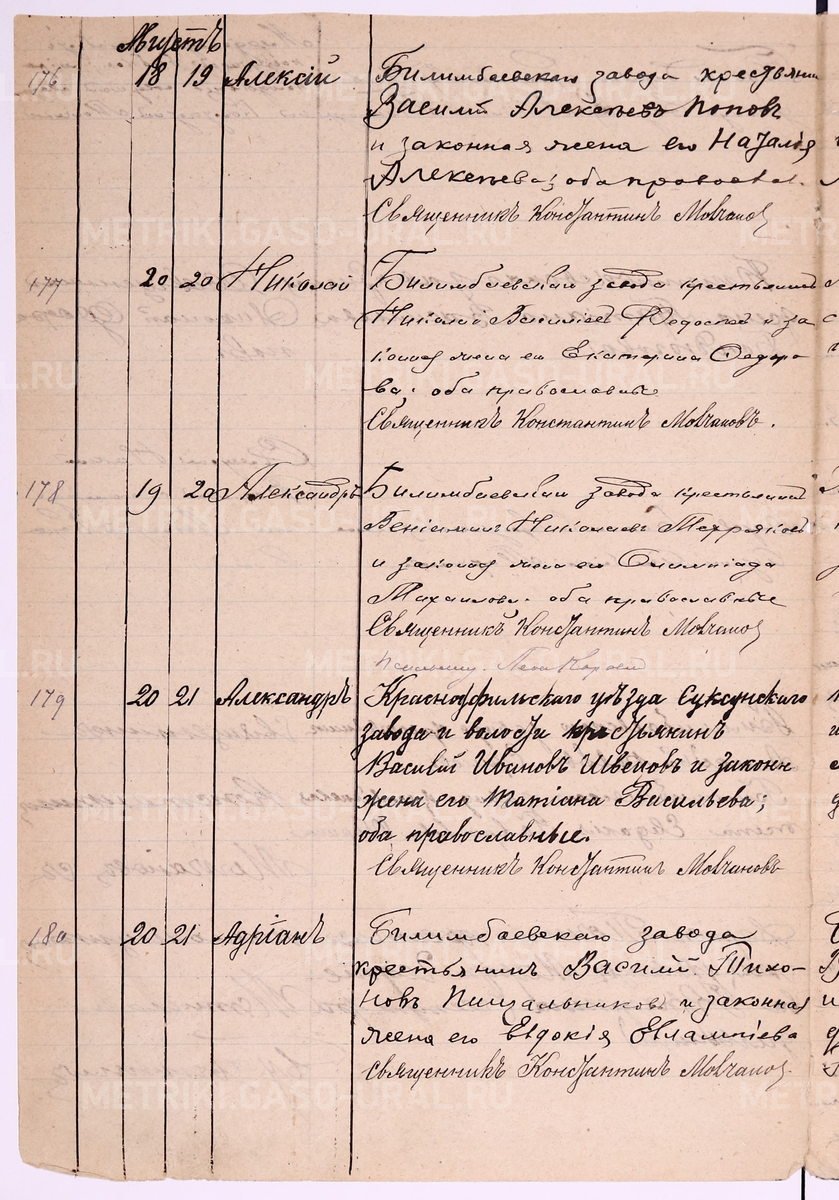 Августъ
176 18 19 Алексiй Билимбаевскаго завода крестьянин
Василiй Алексѣевъ Поповъ
и законная жена его Наталiя
Алексѣева; оба правосла.
Священникъ Константинъ Мовчанов
177 20 20 Николай Билимбаевскаго завода крестьянинъ
Николай Василiев Федосѣев и за
конная жена его Екатерина Федоро-
ва; оба православные
Священникъ Константинъ Мовчановъ.
178 19 20 Александръ Билимбаевскаго завода крестьянинъ
Венiаминъ Николаевъ Мехряков
и законная жена его Олимпiада
Михаилова. оба православные
Священникъ Константинъ Мовчанов
179 20 21 Александръ Красноуфильскаго уѣзда Суксунскаго
завода и волости крестьянинъ
Василiй Ивановъ Швецовъ и законн
жена его Татiана Васильева;
оба православные.
Священникъ Константинъ Мовчановъ
180 20 21 Адрiанъ Билимбаевскаго завода
крестьянинъ Василiй Тихо-
новъ Пищальниковъ и законная
жена его Евдокiя Евлампiева
Священникъ Константинъ Мовчанов.
METRIKI.GASO-URAL.RU